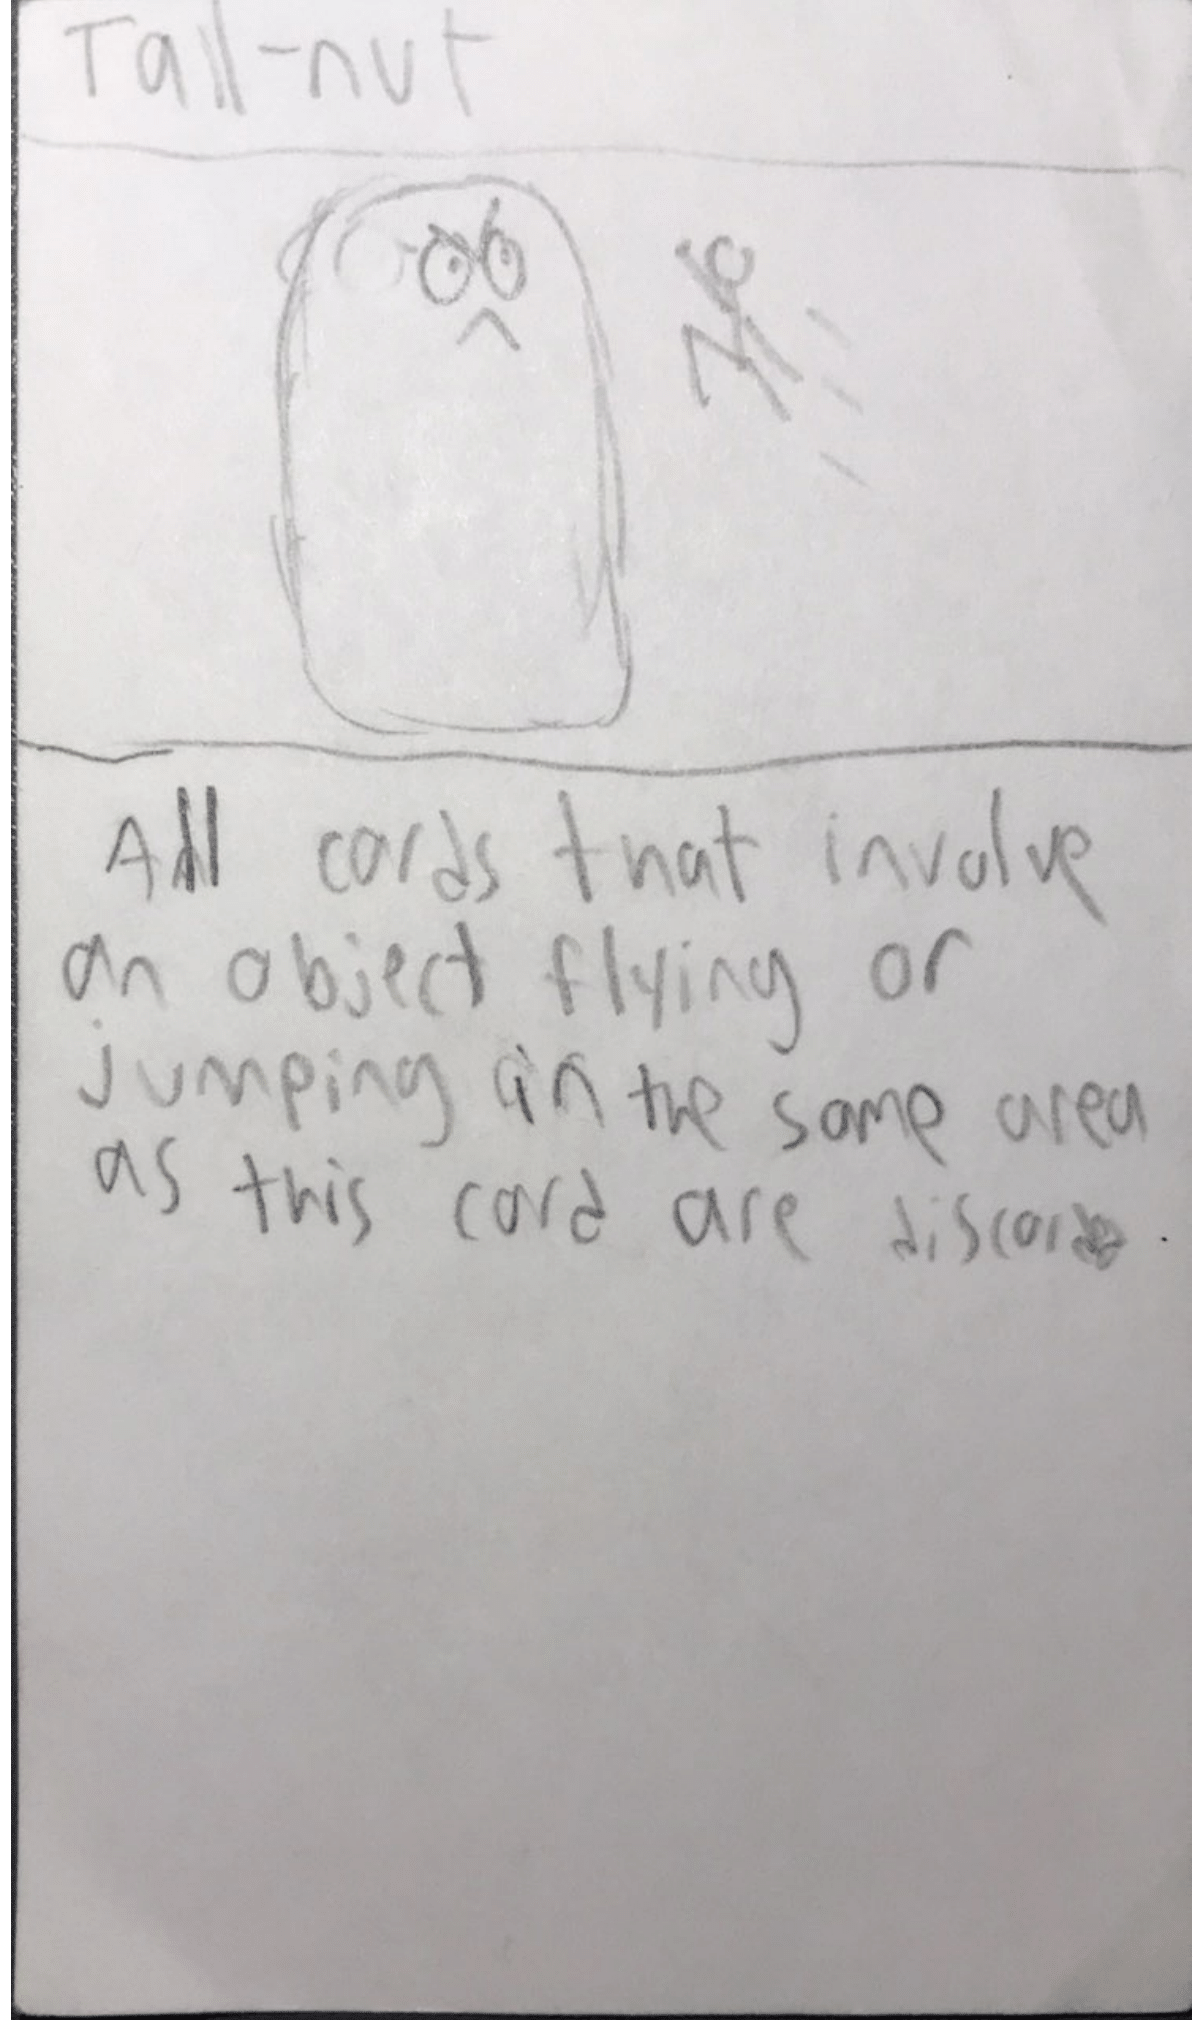 Tall-nut
All cards that involve
an object flying or
jumping in the same area
as this card are